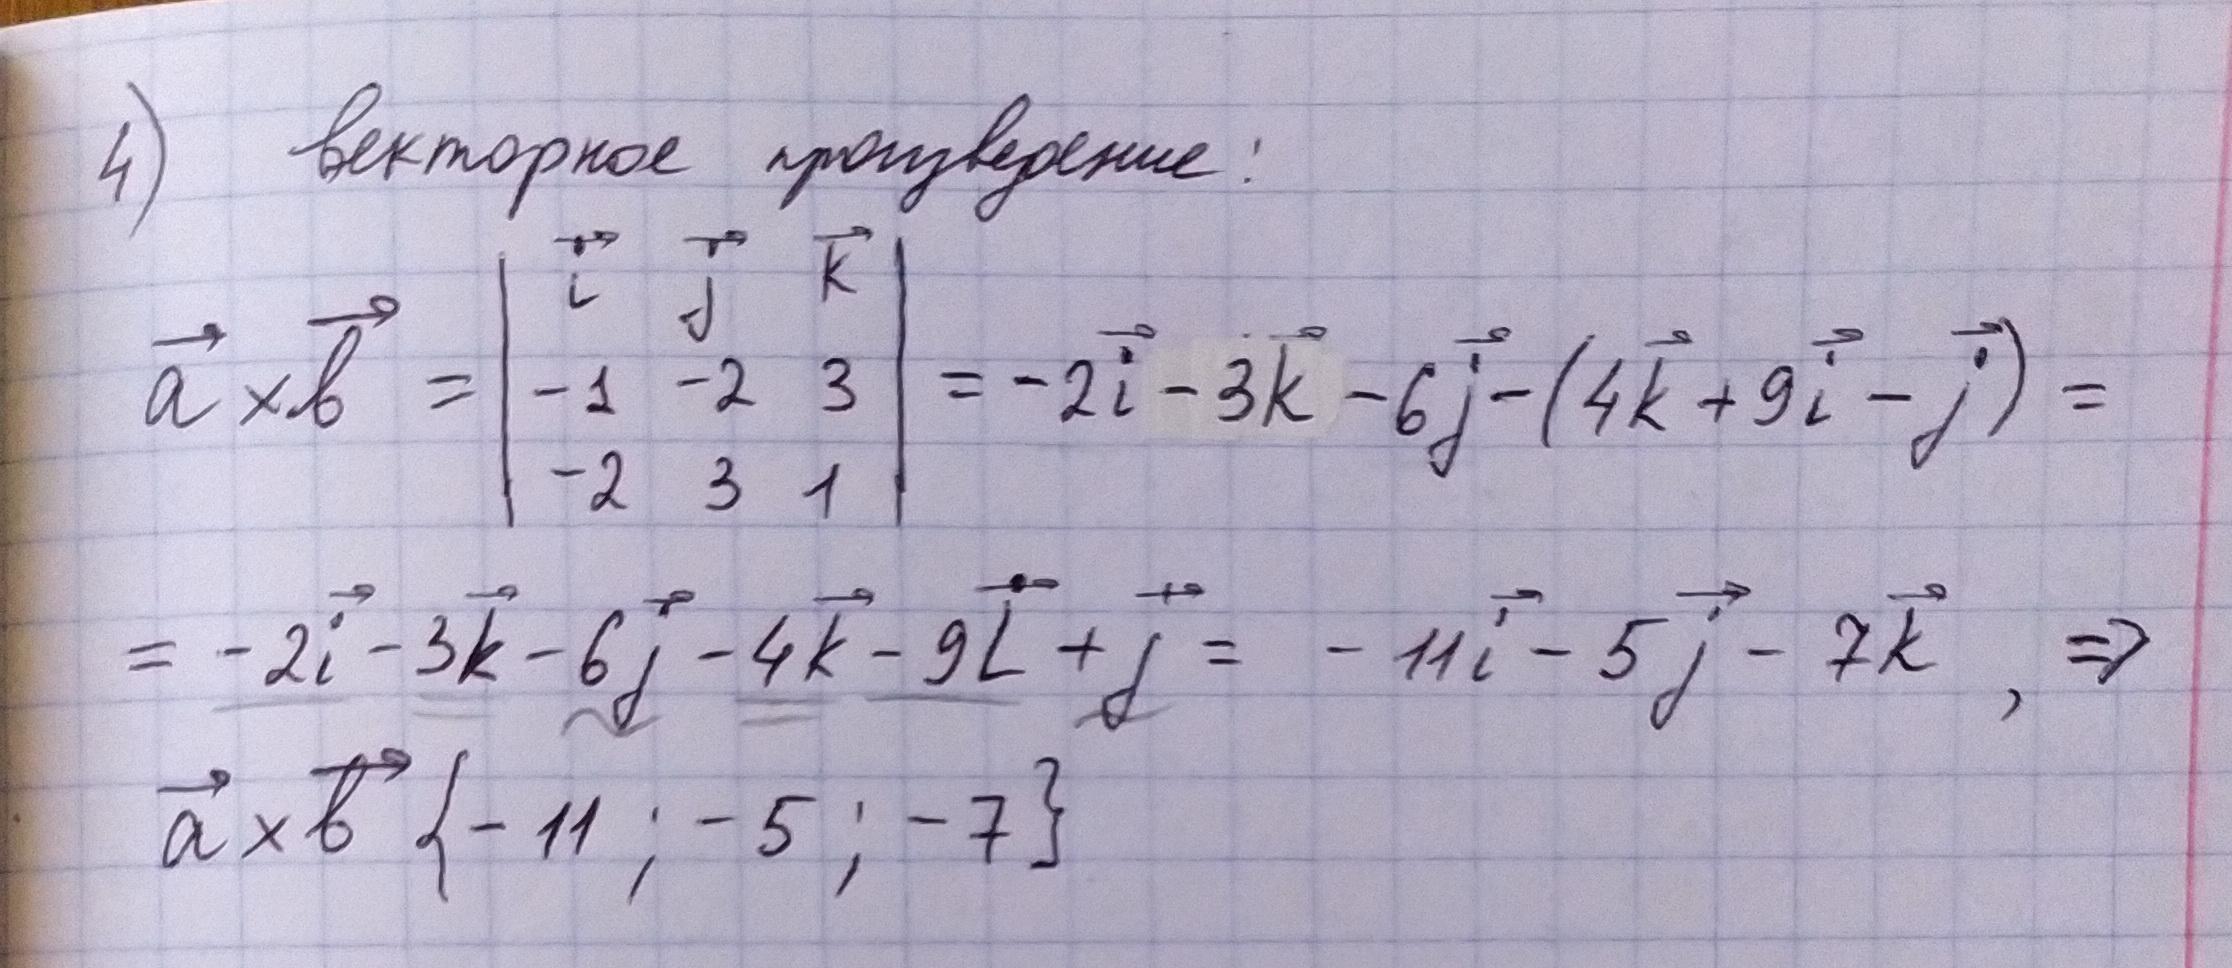 4) векторное произведение:
i⃗ j⃗ k⃗
a⃗ × b⃗ = | -1 -2 3 | = -2i⃗ - 3k⃗ - 6j⃗ - (4k⃗ + 9i⃗ - j⃗) =
-2 3 1
= -2i⃗ - 3k⃗ - 6j⃗ - 4k⃗ - 9i⃗ + j⃗ = -11i⃗ - 5j⃗ - 7k⃗ , ⇒
a⃗ × b⃗ {-11 ; -5 ; -7}